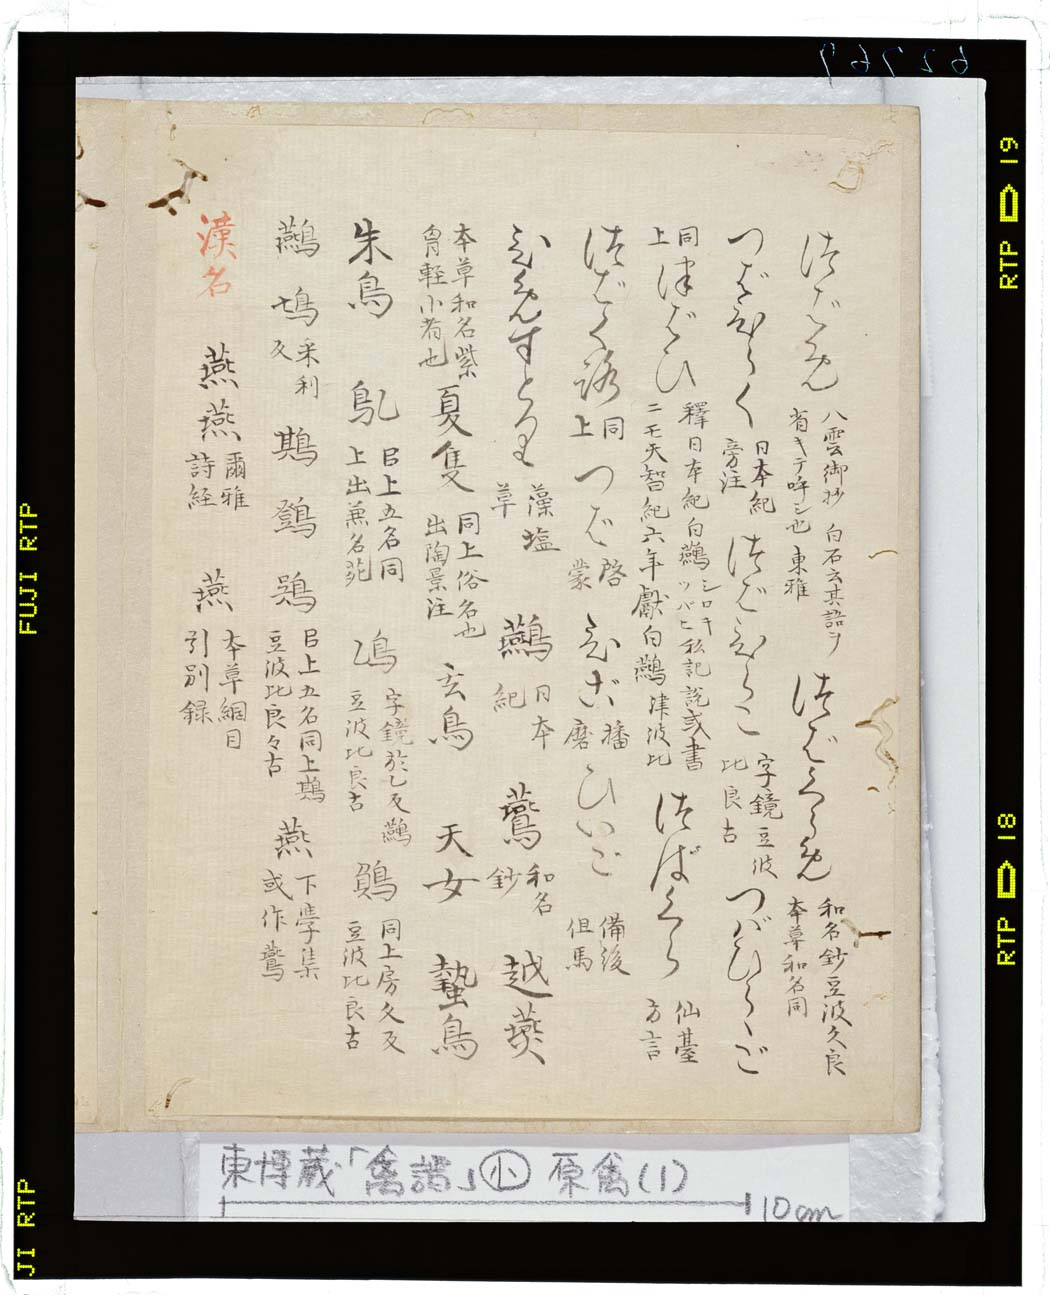 つばくらめ 八雲御抄 白石云其語ヲ
省キテ呼シ也 東雅
つばくらめ 和名鈔豆波久良
本草和名同
つばびらく 日本紀
旁注
つばびらこ 字鏡 豆波
比良古
つバひらゝご
同上 つばひ 釋日本紀白鷰 シロキツバヒ 私記説或書
ニモ天智紀六年獻白鷰 津波比
つばくら 仙臺
方言
つばくろ 同上
つば 啓蒙
播磨
ひいご 備後
但馬
ひめすどり 藻塩草
鷰 日本紀
鷰 和名鈔
越燕
本草和名紫
胷軽小者也
夏隻 同上俗名也
出陶景注
玄鳥
天女
蟄鳥
朱鳥
鳦 㠯上五名同
上出兼名苑
字鏡於乙反鷰
豆波比良古
同上房久反
豆波比良古
采利反
㠯上五名同上
豆波比良々古
燕 下學集
或作鷰
漢名
燕燕 爾雅
詩経
燕 本草綱目
引別録
東博蔵「禽譜」小 原禽(1)
10cm
62767
FUJI RTP
JI RTP
RTP 19
RTP 18